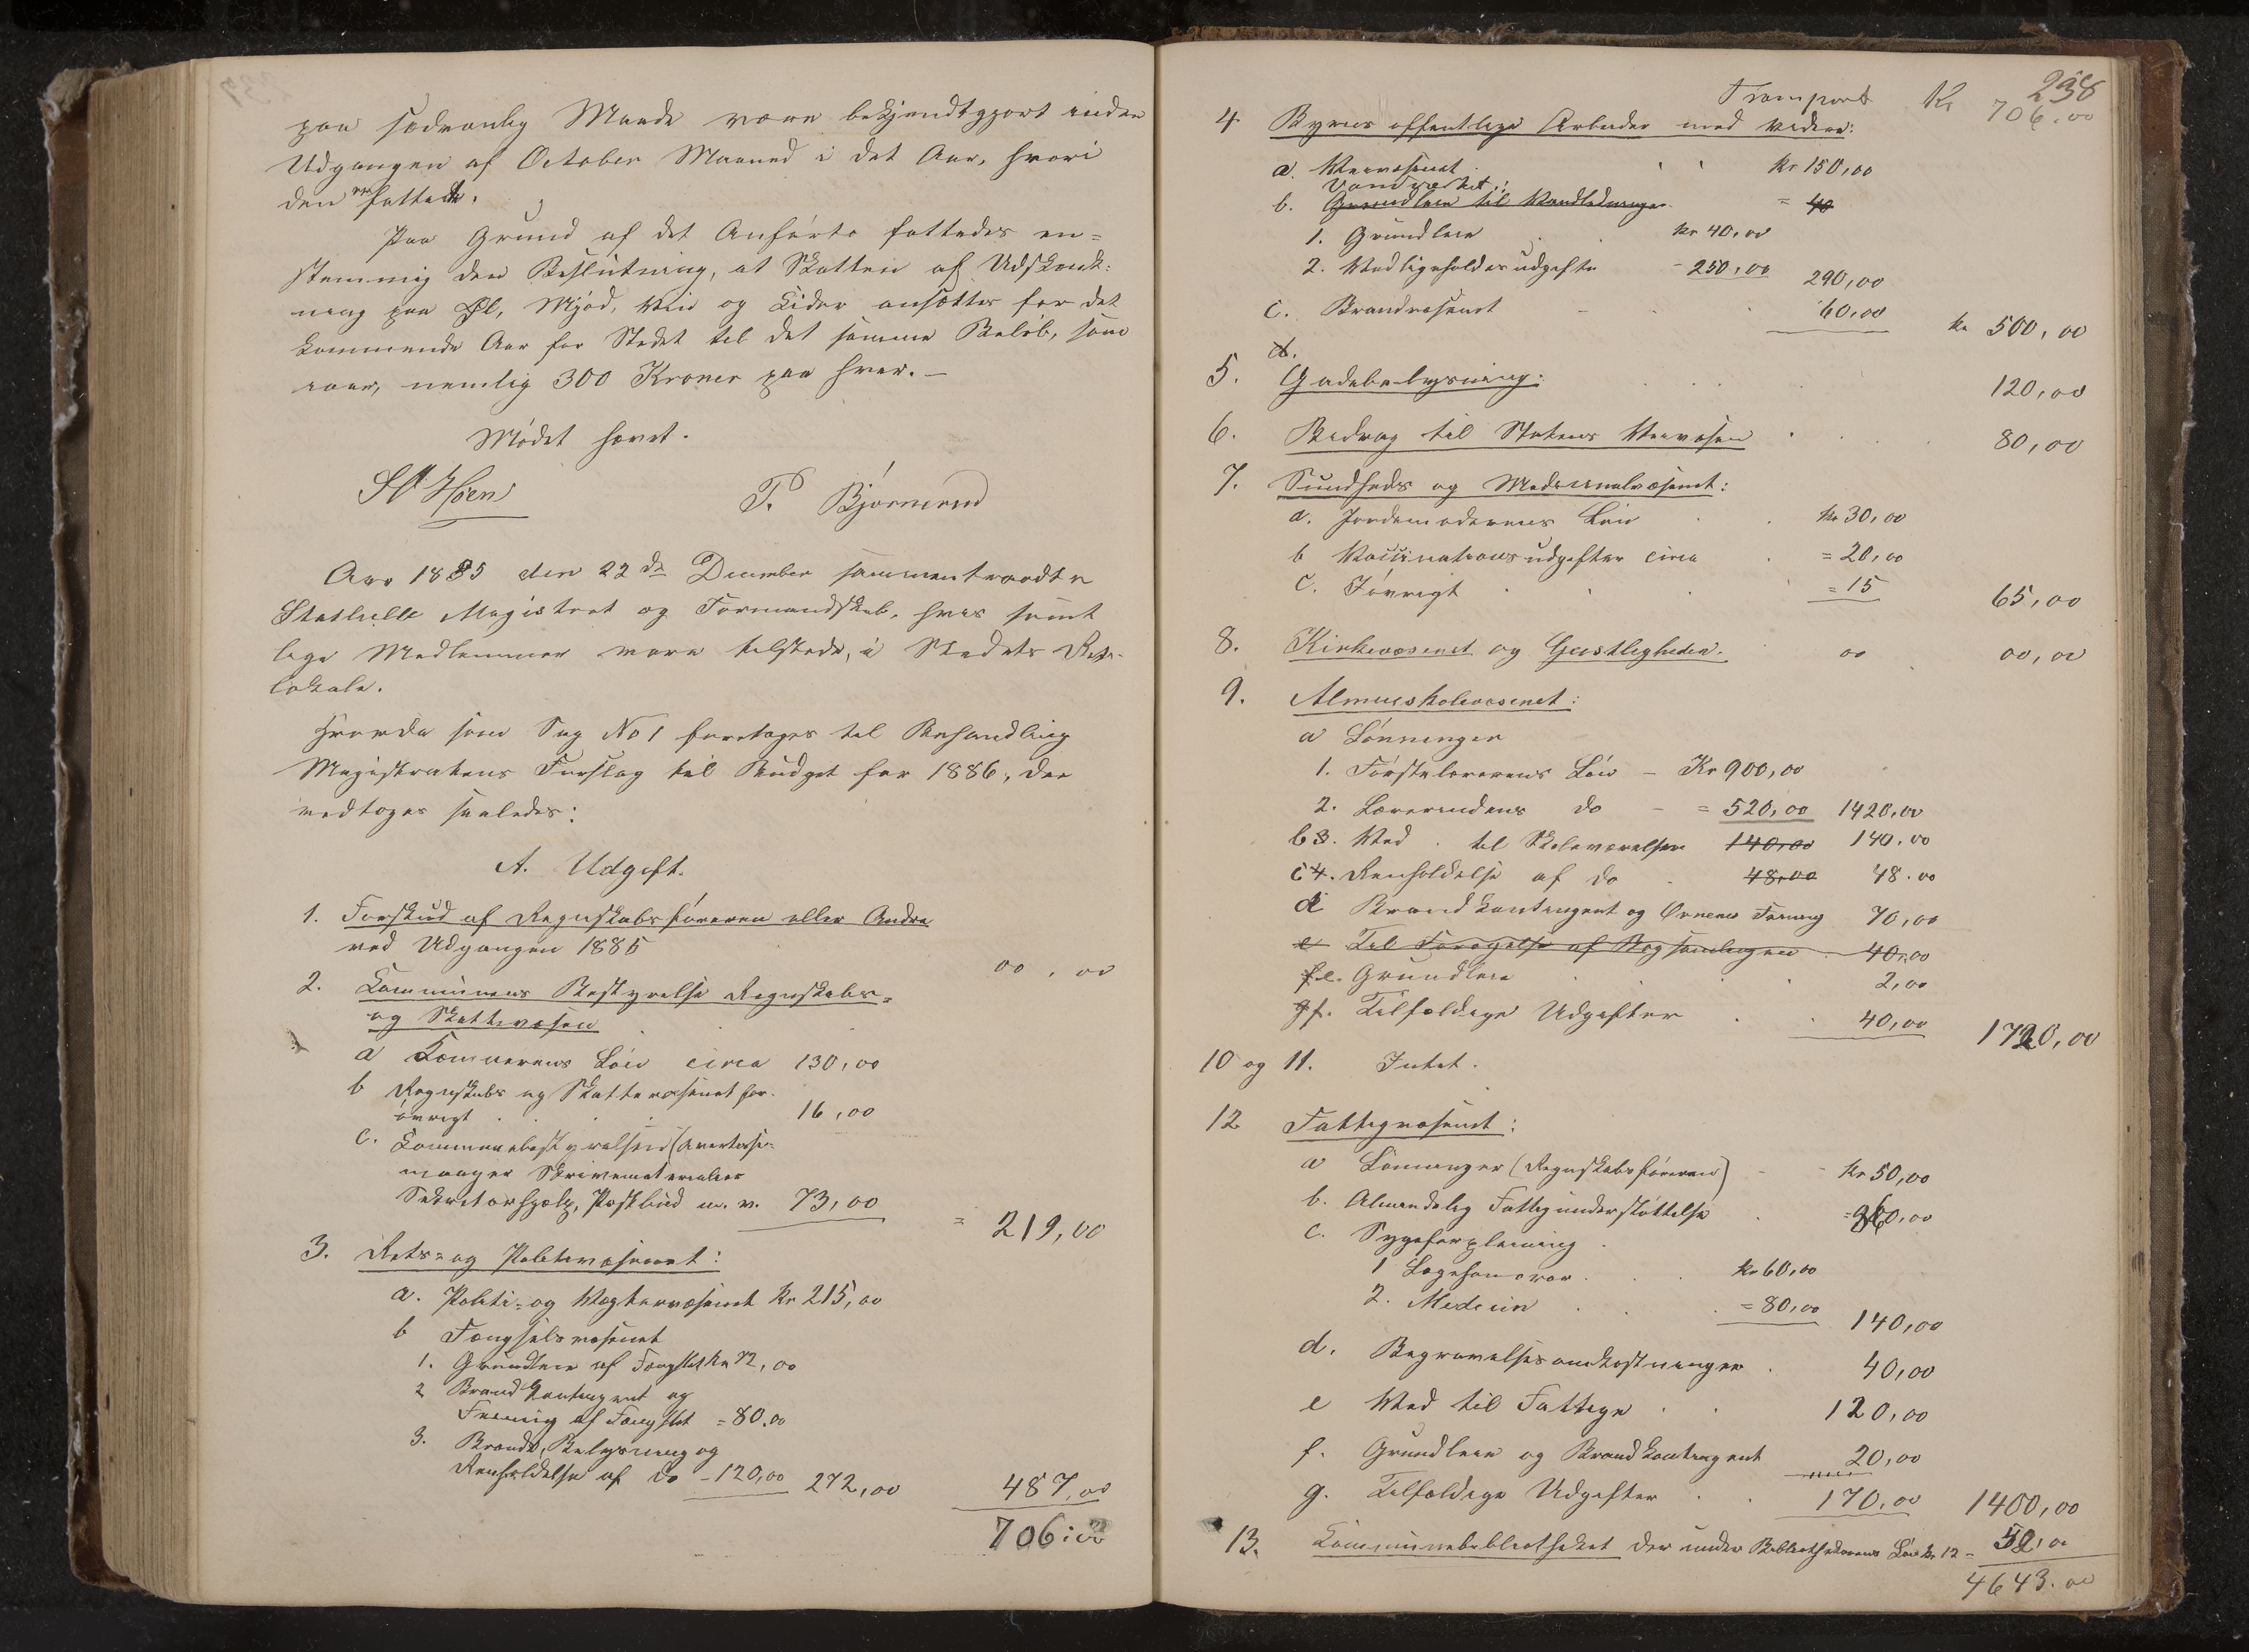 paa sædvanlig Maade være bekjendtgjort inden
Udgangen af October Maaned i det Aar, hvori
den er fattet.
Paa Grund af det Anførte fattedes en=
stemmig den Beslutning, at Skatten af Udskænk=
ning paa Øl, Mjød, Vin og Cider ansættes for det
kommende Aar for Stedet til det samme Beløb, som
iaar, nemlig 300 Kroner paa hver. —
Mødet hævet.
P. Bjørnerud
Aar 1885 den 22de December sammentraadte
Stathelle Magistrat og Formandskab, hvis samt
lige Medlemmer vare tilstede, i Stedets Rets-
lokale.
Hvorda som Sag No 1 foretoges til Behandling
Magistratens Forslag til Budget for 1886, der
vedtoges saaledes:
A. Udgift.
1. Forskud af Regnskabsføreren eller Andre
ved Udgangen 1885 00,00
2. Kommunens Bestyrelse Regnskabs=
og Skattevæsen
a Kæmnerens Løn circa 130,00
b Regnskabs og Skattevæsenet for.
øvrigt 16,00
c. Kommunebestyrelsen (Avertisse=
menter Skrivematerialier
Sekretærhjælp, Postbud m. v. 73,00 = 219,00
3. Rets= og Politivæsenet:
a. Politi= og Vægtervæsenet Kr 215,00
b Fængselsvæsenet
1. Grundleie af Fængslet Kr 72,00
2 Brandkontingent og
af Fængslet = 80.00
3. Brænde, Belysning og
Renholdelse af do - 120,00 272,00 487,00
706:00
238
Transport Kr 706.00
4 Byens offentlige Arbeider med videre:
a. Veivæsenet Kr 150,00
Vandværket:
b. Grundleie til Vandledningen = 40
1. Grundleie Kr 40,00
2. Vedligeholdesudgifter - 250,00 290,00
c. Brandvæsenet 60,00 Kr 500,00
d.
5. Gadebelysning: 120,00
6. Bidrag til Statens Veivæsen 80,00
7. Sundheds og Medicinalvæsenet:
a. Jordemoderens Løn Kr 30,00
b Vaccinationsudgifter circa = 20,00
c. Iøvrigt = 15 65,00
8. Kirkevæsenet og Geistligheden. 00 00,00
9. Almueskolevæsenet:
a Lønninger
1. Førstelærerens Løn - Kr 900,00
2. Lærerindens do - = 520,00 1420,00
b 3. Ved til Skoleværelser 140,00 140.00
c 4. Renholdelse af do 48,00 48.00
d Brandkontingent og Ovnenes 70,00
e Til Forøgelse af Bogsamlingen 40,00
f e. Grundleie 2,00
g f. Tilfældige Udgifter 40,00 1720,00
10 og 11. Intet.
12 Fattigvæsenet:
a Lønninger (Regnskabsføreren) - Kr 50,00
b. Almindelig Fattigunderstøttelse = 860,00
c. Sygeforpleining
1 Lægehonorar Kr 60,00
2. Medicin = 80,00 140,00
d. Begravelsesomkostninger 40,00
e Ved til Fattige 120,00
f. Grundleie og Brandkontingent 20,00
g. Tilfældige Udgifter 170,00 1400,00
13. Kommunebibliotheket derunder Bibliothekarens Løn Kr 12 - 52,00
4643.00